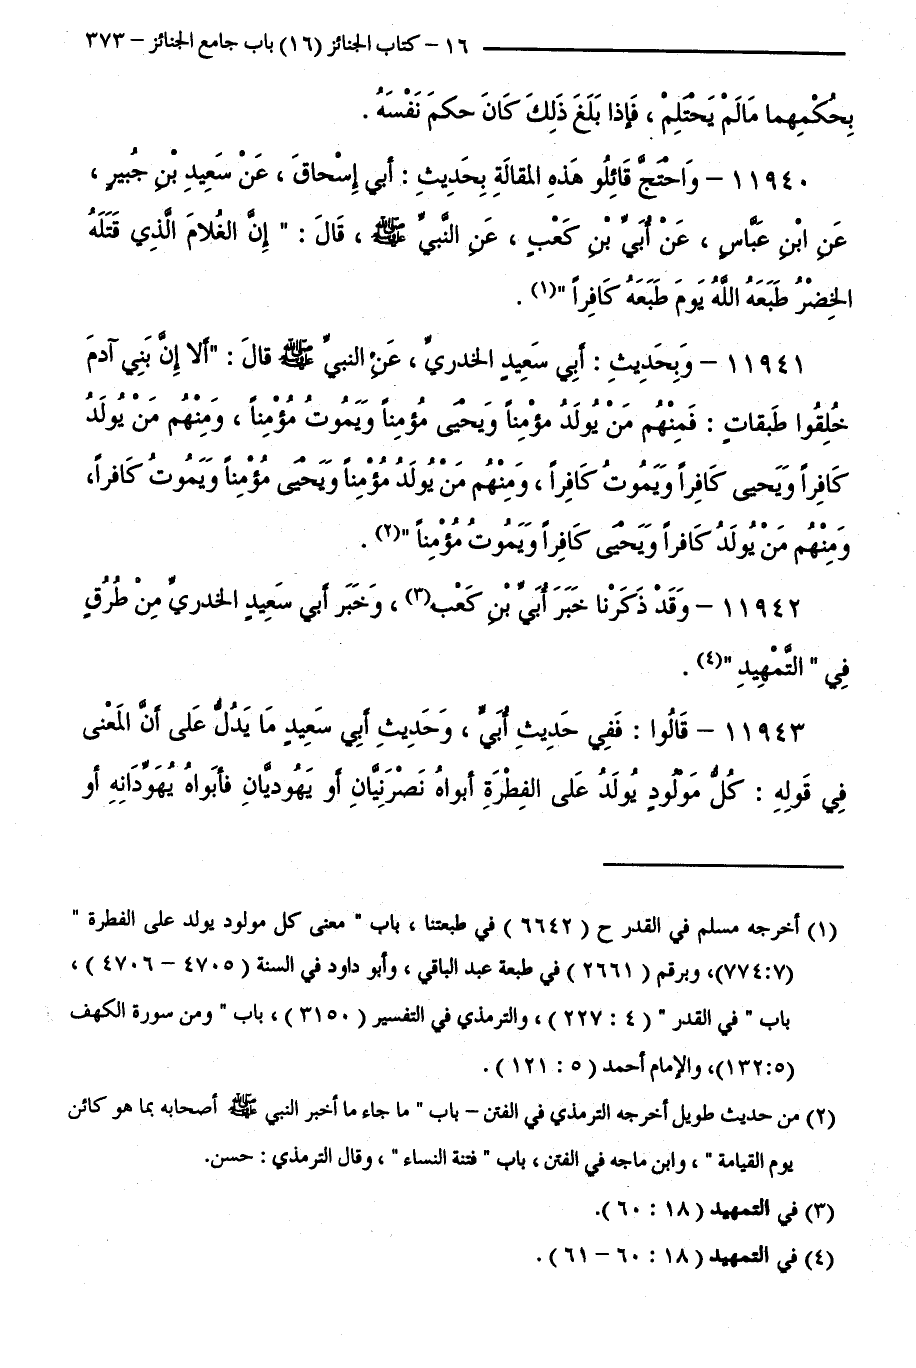 ١٦ – كتاب الجنائز (١٦) باب جامع الجنائز – ٣٧٣
بِحُكْمِهِما مَالَمْ يَحتَلِمْ ، فَإِذا بَلَغَ ذَلِكَ كَانَ حكمَ نَفْسَهُ .
١١٩٤٠ – وَاحتَجَّ قَائِلُو هَذهِ المقالَةِ بِحَديثِ : أبي إِسْحاقَ ، عَنْ سَعِيدِ بْنِ جُبيرٍ ،
عَنِ ابْنِ عَبَّاسٍ ، عَنْ أُبَيِّ بْنِ كَعْبٍ ، عَنِ النَّبِيِّ ﷺ ، قَالَ : " إِنَّ الغُلامَ الَّذِي قَتَلَهُ
الخِضْرُ طَبَعَهُ اللَّهُ يَومَ طَبَعَهُ كَافِراً "(١) .
١١٩٤١ – وَبِحَديثِ : أَبِي سَعيدٍ الخدريِّ ، عَنِ النبيِّ ﷺ قالَ : "ألا إِنَّ بَنِي آدمَ
خُلِقُوا طَبَقاتٍ : فَمِنْهُم مَنْ يُولَدُ مؤْمِناً وَيحْيَى مُؤمِناً وَيَمُوتُ مُؤْمِناً ، وَمِنْهُم مَنْ يُولَدُ
كَافِراً وَيَحيى كَافِراً وَيَمُوتُ كَافِراً ، وَمِنْهُم مَنْ يُولَدُ مُؤْمِناً وَيَحْيَى مؤْمِناً وَيَمُوتُ كَافِراً،
وَمِنْهُم مَنْ يُولَدُ كَافراً وَيَحْيَى كَافِراً وَيَمُوتُ مُؤْمِناً "(٢) .
١١٩٤٢ – وَقَدْ ذَكَرْنا خَبَرَ أُبَيِّ بْنِ كَعْبٍ(٣) ، وَخَبَرَ أبي سَعِيدٍ الخدريِّ مِنْ طُرُقٍ
فِي " التَّمْهِيدِ "(٤) .
١١٩٤٣ – قَالُوا : فَفِي حَديثِ أُبَيٍّ ، وَحَديثِ أبِي سَعيدٍ مَا يَدُلُّ عَلى أَنَّ المَعْنى
فِي قَولِهِ : كُلُّ مَوْلُودٍ يُولَدُ عَلى الفِطْرَةِ أبواهُ نَصْرَنيَّانِ أو يَهُوديانِ فأبَواهُ يُهَوِّدَانِهِ أو
(١) أخرجه مسلم في القدر ح ( ٦٦٤٢ ) في طبعتنا ، باب " معنى كل مولود يولد على الفطرة "
(٧٧٤:٧)، وبرقم ( ٢٦٦١ ) في طبعة عبد الباقي ، وأبو داود في السنة ( ٤٧٠٥ – ٤٧٠٦ ) ،
باب " في القدر " ( ٤ : ٢٢٧ ) ، والترمذي في التفسير ( ٣١٥٠ ) ، باب " ومن سورة الكهف
(١٣٢:٥)، والإمام أحمد ( ٥ : ١٢١ ) .
(٢) من حديث طويل أخرجه الترمذي في الفتن – باب " ما جاء ما أخبر النبي ﷺ أصحابه بما هو كائن
يوم القيامة " ، وابن ماجه في الفتن ، باب " فتنة النساء " ، وقال الترمذي : حسن.
(٣) في التمهيد ( ١٨ : ٦٠ ).
(٤) في التمهيد ( ١٨ : ٦٠ – ٦١ ) .